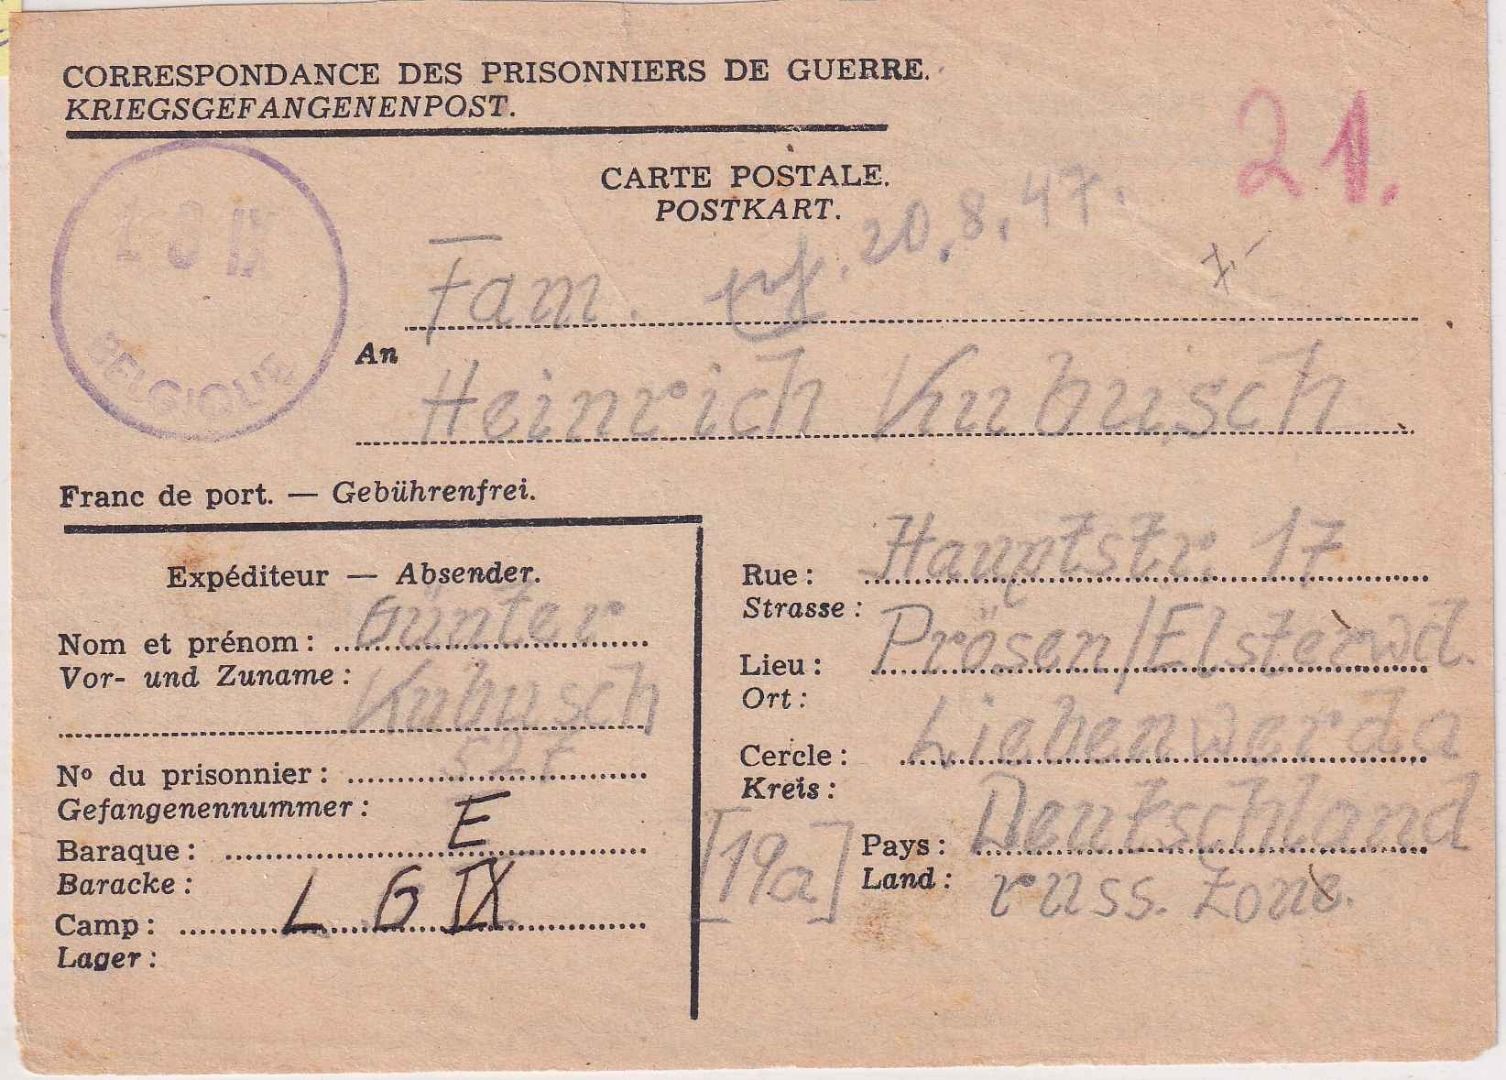 CORRESPONDANCE DES PRISONNIERS DE GUERRE.
KRIEGSGEFANGENENPOST.
21.
CARTE POSTALE.
POSTKART.
20.8.47.
Fam.
An
Heinrich Kubusch
BELGIQUE
Franc de port. — Gebührenfrei.
Expéditeur — Absender.
Nom et prénom: Günter
Vor- und Zuname:
Kubusch
Nº du prisonnier: 527
Gefangenennummer:
Baraque: E
Baracke:
Camp: L G IX
Lager:
Rue: Hauptstr. 17
Strasse:
Lieu: Prösen/Elsterwd.
Ort:
Cercle: Liebenwerda
Kreis:
[19a]
Pays: Deutschland
Land: russ. Zone.